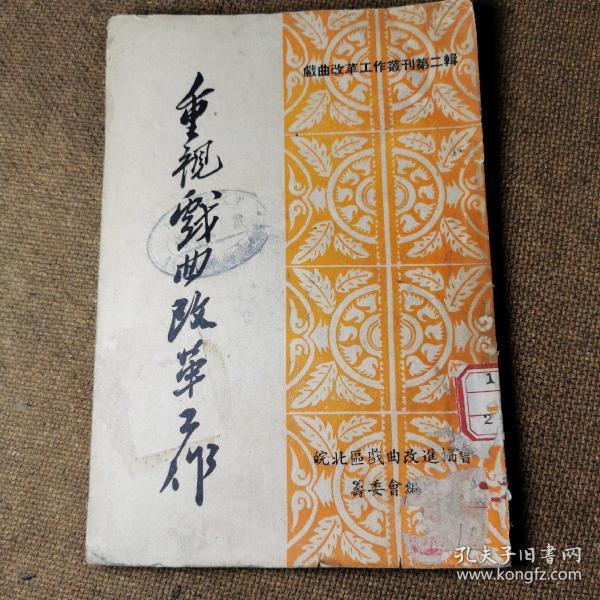 戲曲改革工作叢刊第二輯
重視戲曲改革工作
皖北區戲曲改進協會
籌委會編
1
2
孔夫子旧书网
www.kongfz.com